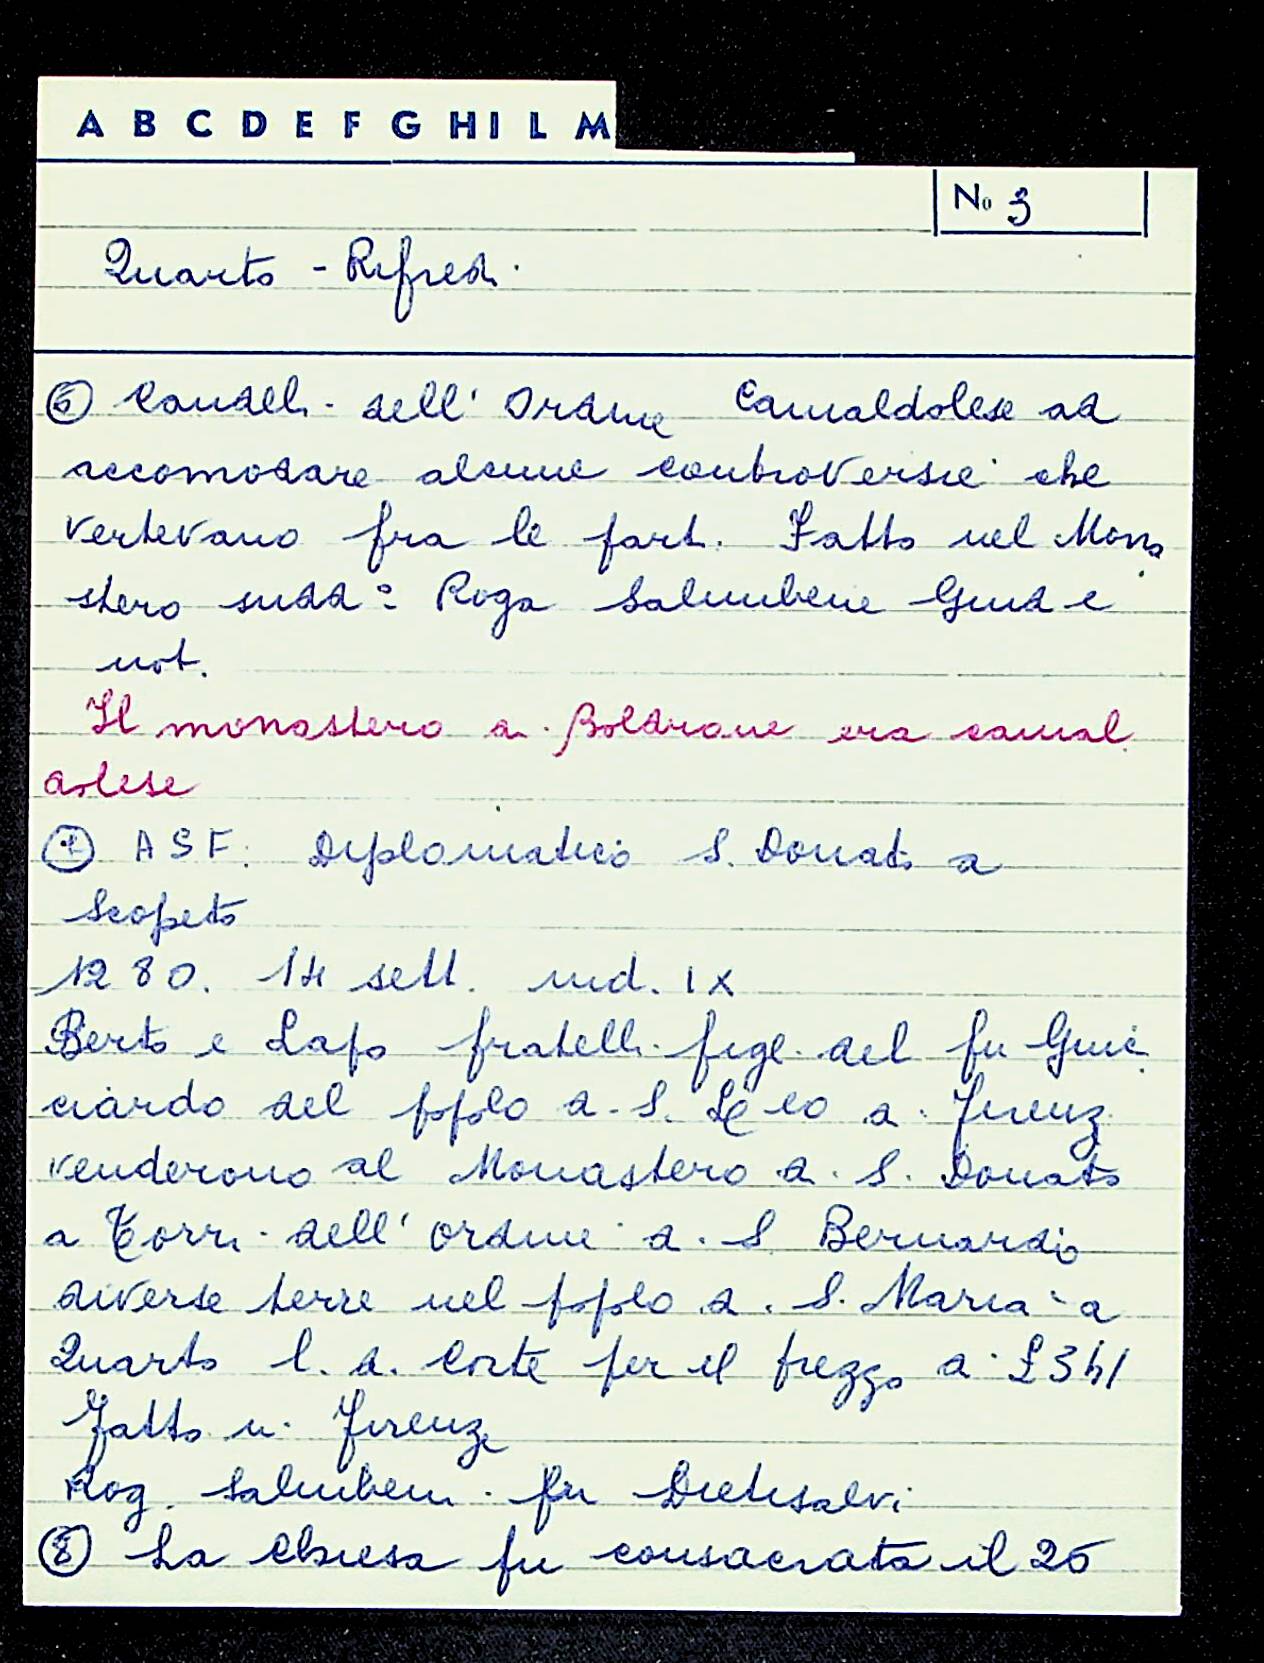 A B C D E F G H I L M
No 3
Quarto - Rifredi
⑥ Candeli dell' Ordine Camaldolese ad
accomodare alcune controversie che
vertevano fra le parti. Fatto nel Mona
stero sudd° Roga Salimbene Guidi e
not.
Il monastero di Boldrone era camal
dolese
⑦ ASF. Diplomatico S. Donato a
Scopeto
1280. 14 sett. ind. IX
Berto e Lapo fratelli figl. del fu Guic
ciardo del popolo di S. Leo di Firenz
venderono al Monastero di S. Donato
a Torri dell' ordine di S. Bernardo
diverse terre nel popolo di S. Maria a
Quarto l. d. Corte per il prezzo di £341
Fatto in Firenze
Rog. Salimbeni fu Dietisalvi
⑧ La Chiesa fu consacrata il 26